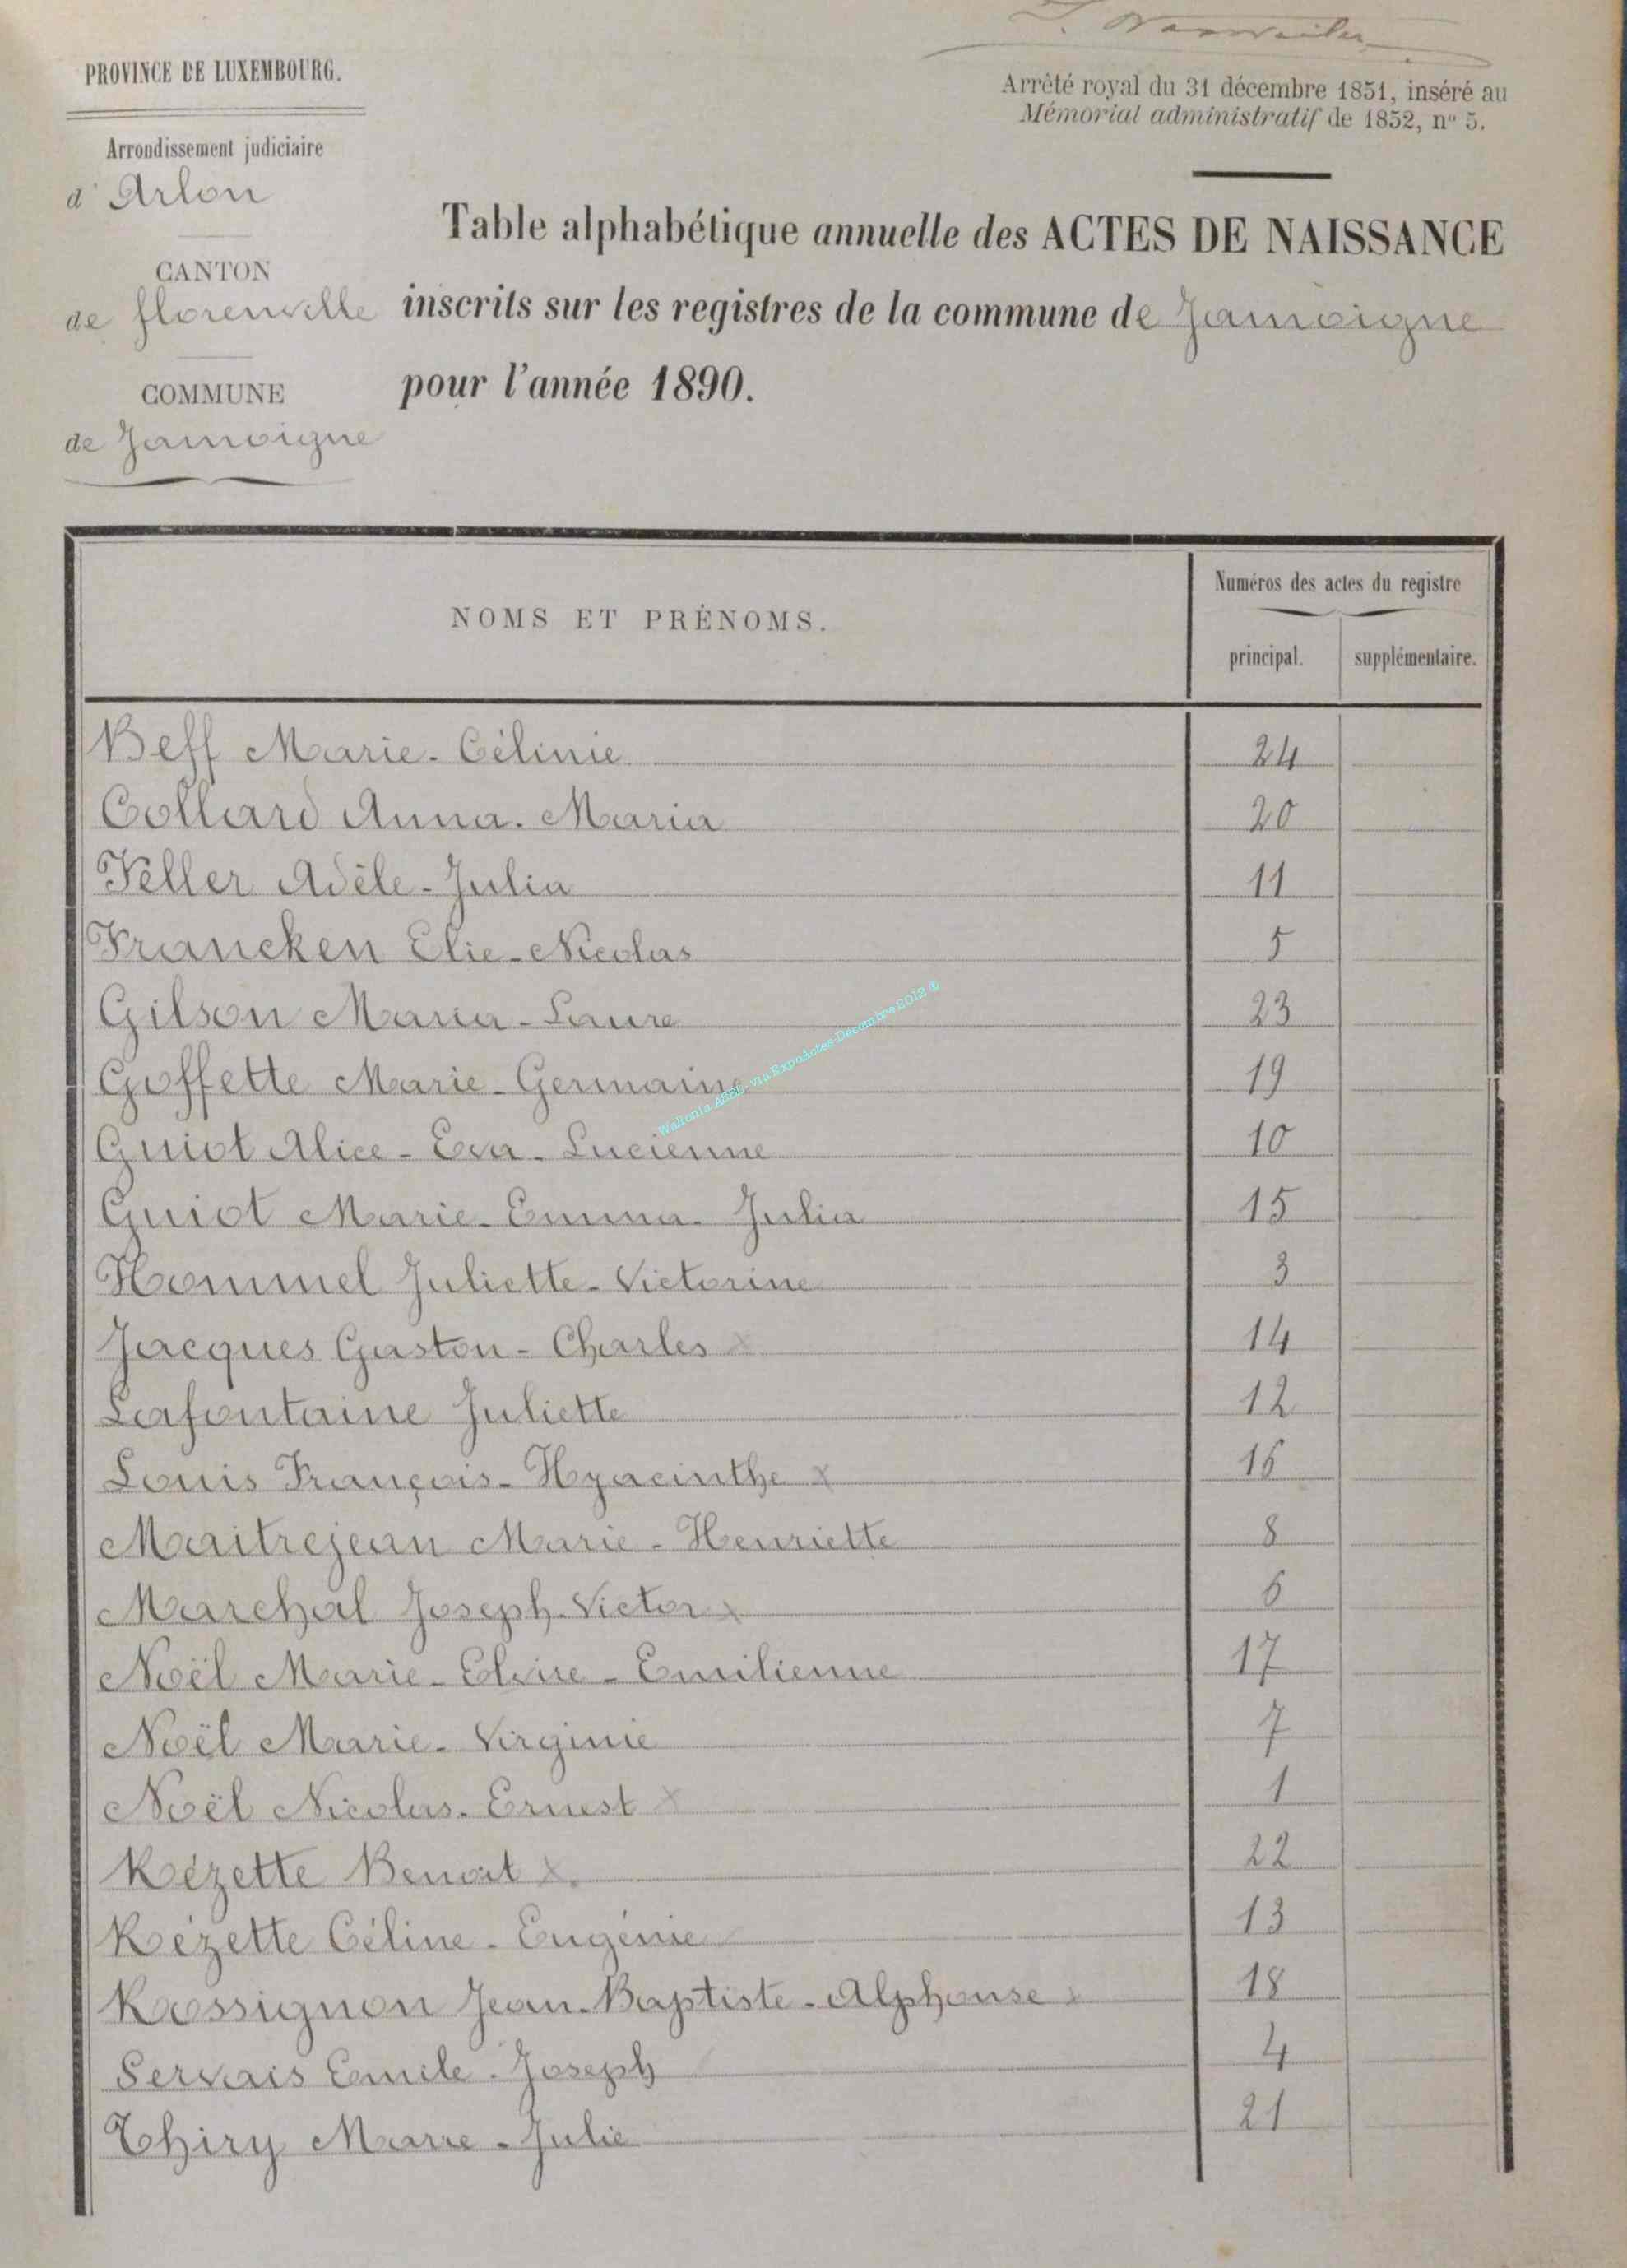 PROVINCE DE LUXEMBOURG.
Arrondissement judiciaire
d'Arlon
CANTON
de florenville
COMMUNE
de Jamoigne
Arrêté royal du 31 décembre 1851, inséré au
Mémorial administratif de 1852, nº 5.
Table alphabétique annuelle des ACTES DE NAISSANCE
inscrits sur les registres de la commune de Jamoigne
pour l'année 1890.
NOMS ET PRÉNOMS.
Numéros des actes du registre
principal. supplémentaire.
Beff Marie-Célinie 24
Collard Anna-Maria 20
Feller Adèle-Julia 11
Francken Elie-Nicolas 5
Gilson Maria-Laure 23
Goffette Marie-Germaine 19
Guiot Alice-Eva-Lucienne 10
Guiot Marie-Emma-Julia 15
Hommel Juliette-Victorine 3
Jacques Gaston-Charles x 14
Lafontaine Juliette 12
Louis François-Hyacinthe x 16
Maitrejean Marie-Henriette 8
Marchal Joseph-Victor x 6
Noël Marie-Elvire-Emilienne 17
Noël Marie-Virginie 7
Noël Nicolas-Ernest x 1
Rézette Benoit x. 22
Rézette Céline-Eugénie 13
Rossignon Jean-Baptiste-Alphonse x 18
Servais Emile-Joseph 4
Thiry Marie-Julie 21
Wallonia ASBL via ExpoActes Décembre 2012 ©